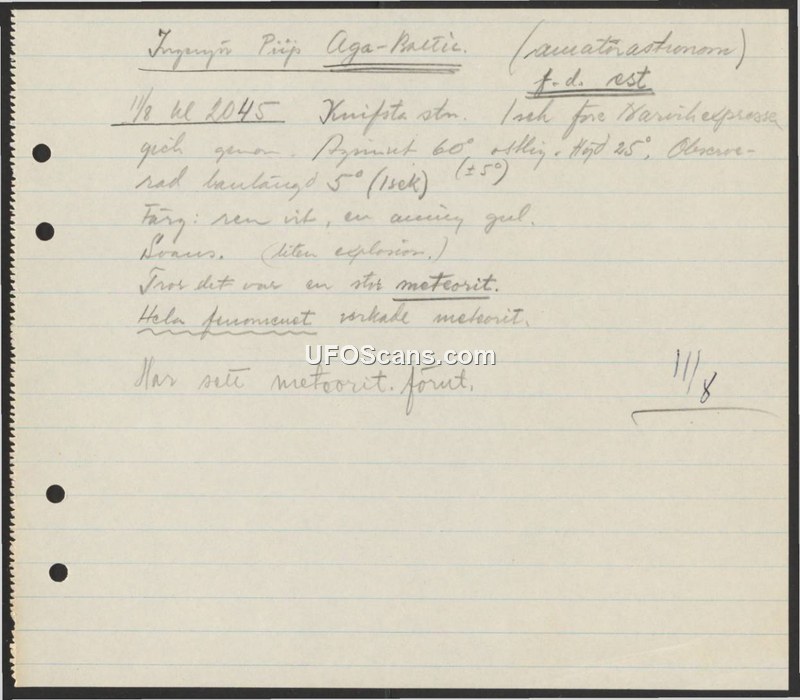 Ingenjör Piip Aga-Baltic. (amatörastronom)
f.d. est
11/8 kl 2045 Knifsta stn. 1 sek före Narvikexpressen
gick genom. Azimut 60° ostlig. Höjd 25°. Observe-
rad banlängd 5° (1 sek) (±5°)
Färg: ren vit, en aning gul.
Svans. (liten explosion.)
Tror det var en stor meteorit.
Hela fenomenet verkade meteorit.
UFOScans.com
Har sett meteorit förut.
11/8